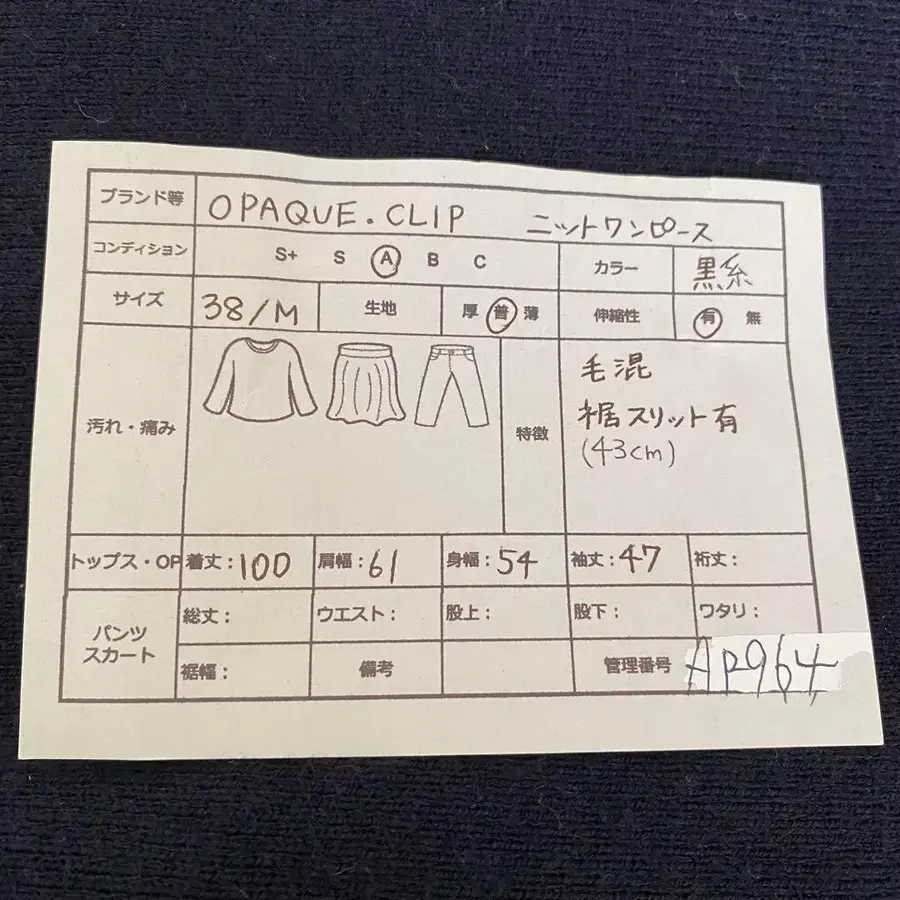 ブランド等 OPAQUE.CLIP ニットワンピース
コンディション S+ S A B C カラー 黒糸
サイズ 38/M 生地 厚 普 薄 伸縮性 有 無
汚れ・痛み 特徴 毛混
裾スリット有
(43cm)
トップス・OP 着丈:100 肩幅:61 身幅:54 袖丈:47 裄丈:
パンツ スカート 総丈: ウエスト: 股上: 股下: ワタリ:
裾幅: 備考 管理番号 AP964